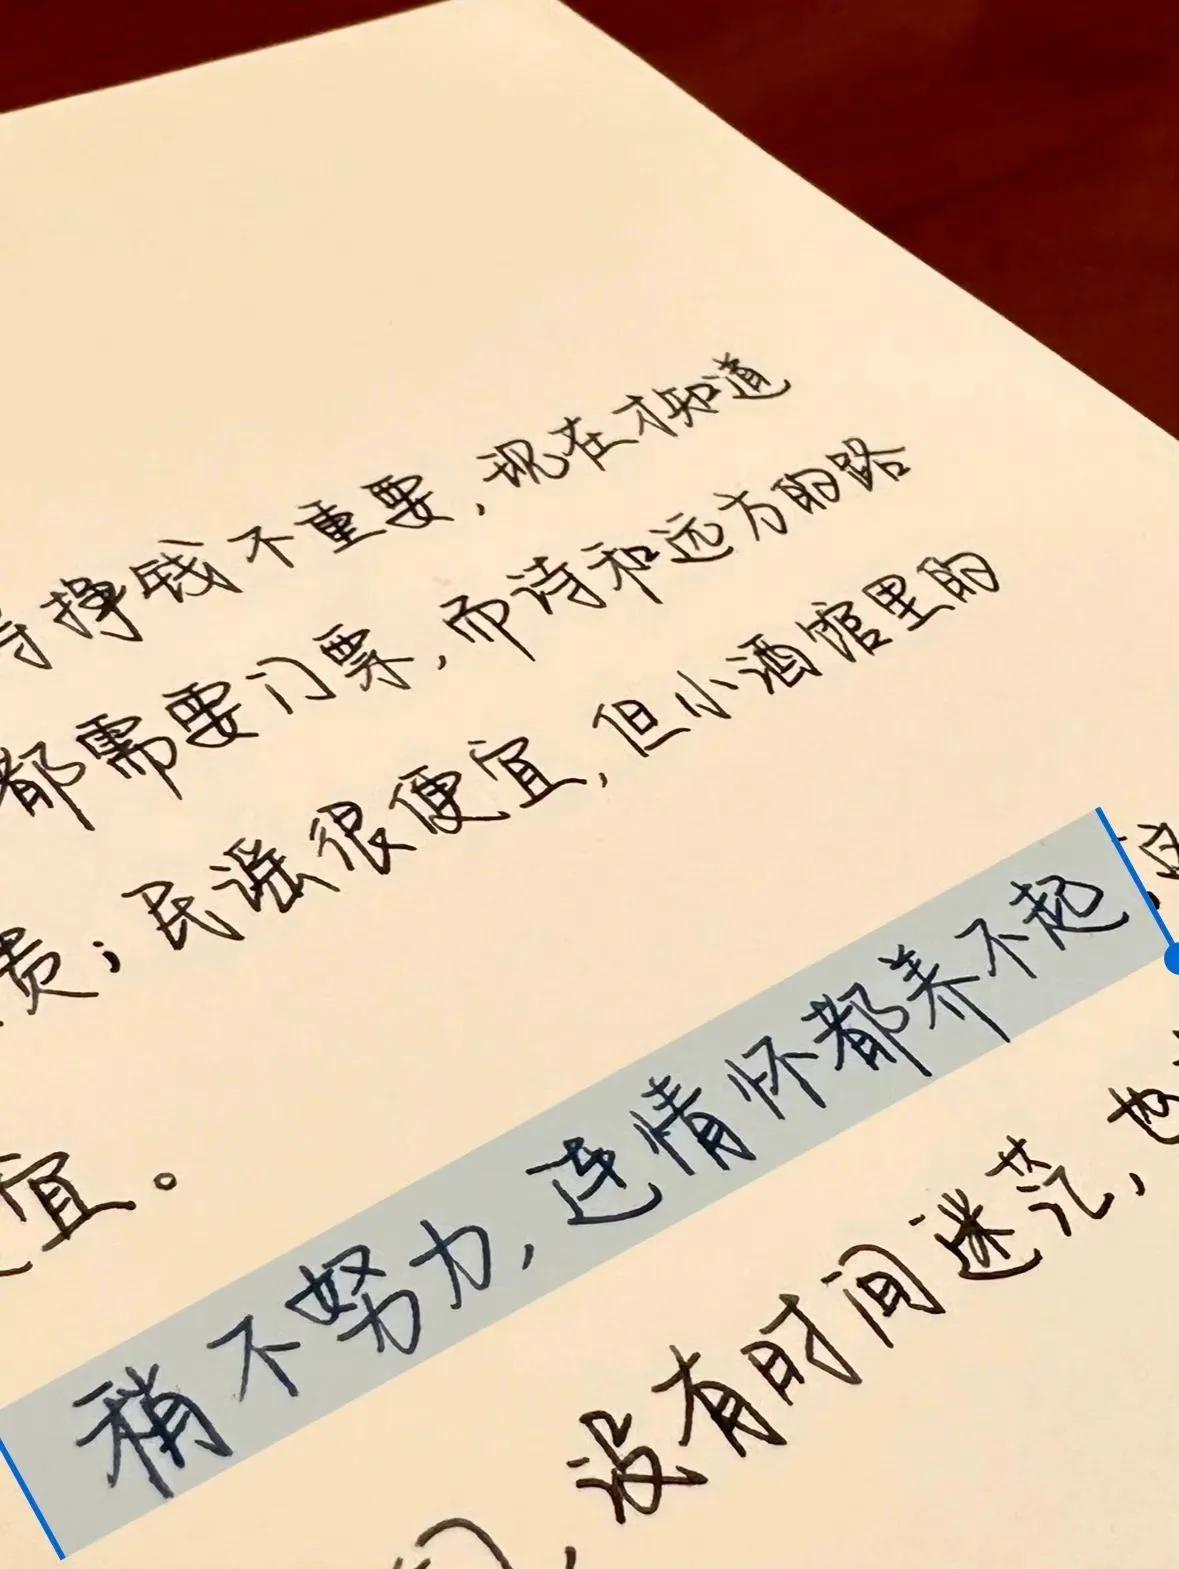 挣钱不重要，现在才知道
都需要门票，而诗和远方的路
贵；民谣很便宜，但小酒馆里的
宜。
稍不努力，连情怀都养不起
，没有时间迷茫，